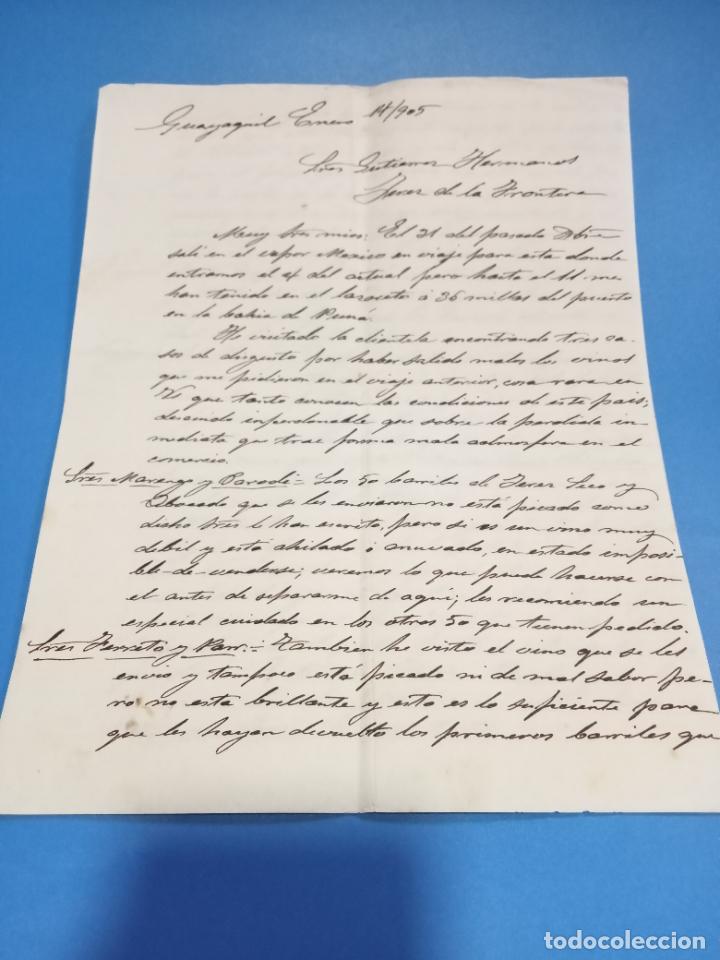 Guayaquil Enero 14/905
Sres Gutierrez Hermanos
Jerez de la Frontera
Muy Sres mios: El 31 del pasado Dbre
sali en el vapor Mexico en viaje para esta donde
entramos el 4 del actual pero hasta el 11 me
han tenido en el lazareto á 36 millas del puerto
en la bahia de Puná.
He visitado la clientela encontrando tres ca-
sos de disgusto por haber salido malos los vinos
que me pidieron en el viaje anterior, cosa rara en
Vs que tanto conocen las condiciones de este pais;
descuido imperdonable que sobre la perdida in-
mediata que trae forma mala atmosfera en el
comercio.
Sres Marengo y Parodi= Los 50 barriles de Jerez Seco y
Abocado que se les enviaron no está picado como
dichos Sres le han escrito, pero si es un vino muy
debil y está ahilado ó muvado, en estado imposi-
ble de venderse; veremos lo que puede hacerse con
el antes de separarme de aquí; les recomiendo un
especial cuidado en los otros 50 que tienen pedido.
Sres Ferreto y Parr.= Tambien he visto el vino que se les
envio y tampoco está picado ni de mal sabor pe-
ro no está brillante y esto es lo suficiente para
que les hayan devuelto los primeros barriles que
todocoleccion
todocoleccion.net